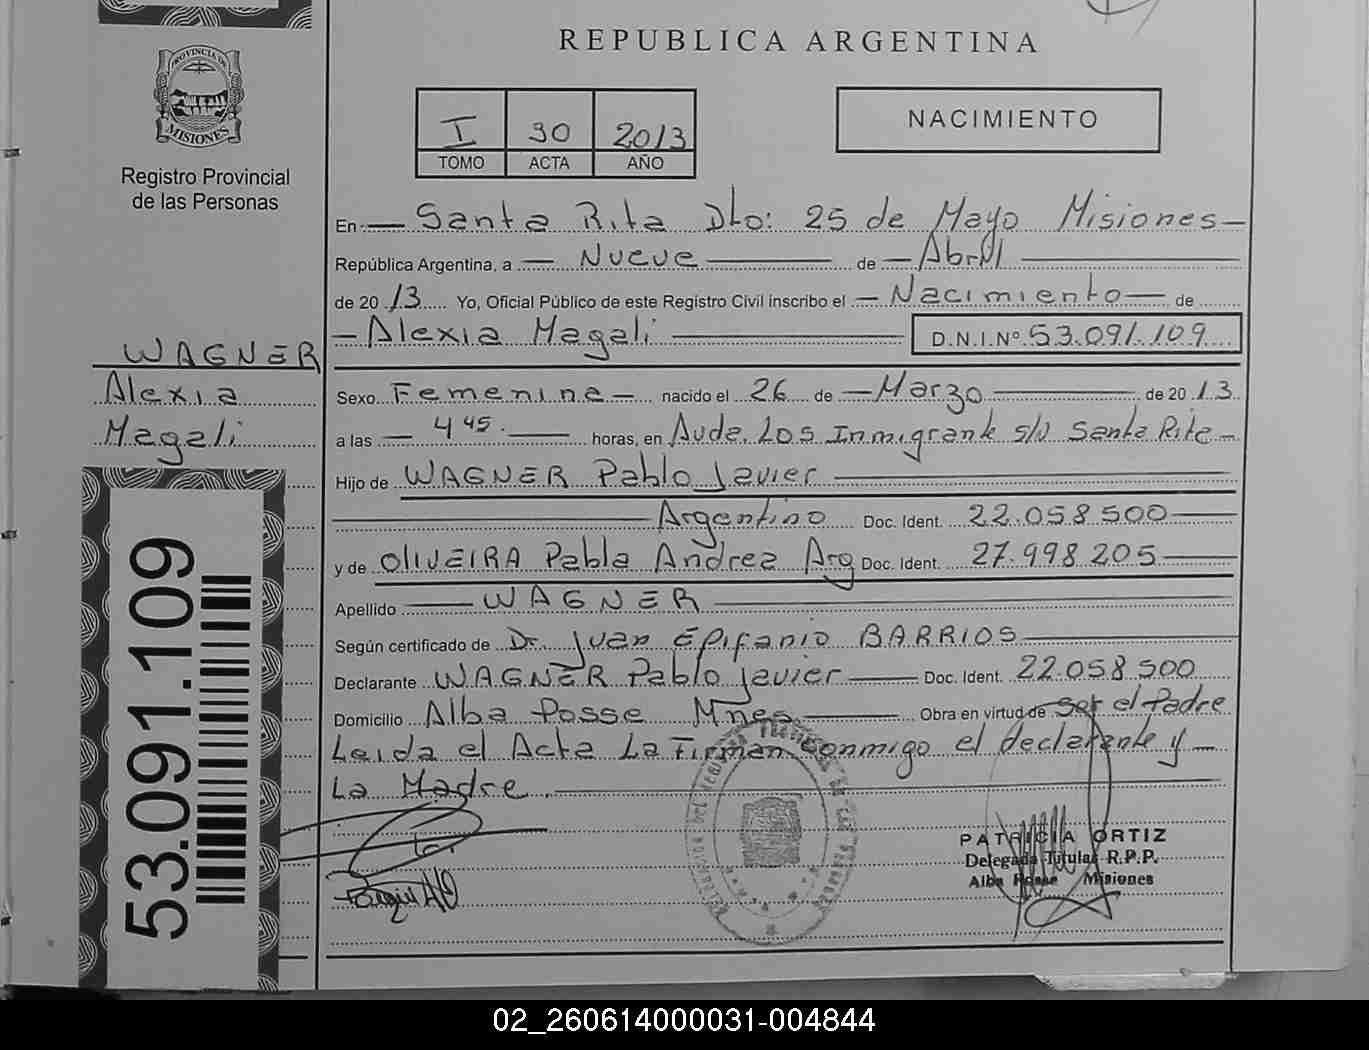 REPUBLICA ARGENTINA
PROVINCIA DE
MISIONES
Registro Provincial
de las Personas
I 30 2013
TOMO ACTA AÑO
NACIMIENTO
En Santa Rita Dto: 25 de Mayo Misiones
República Argentina, a Nueve de Abril
de 2013 Yo, Oficial Público de este Registro Civil inscribo el Nacimiento de
Alexia Magali D.N.I.Nº 53.091.109
WAGNER
Alexia
Magali
53.091.109
Sexo Femenina nacido el 26 de Marzo de 2013
a las 4 45 horas, en Avda. Los Inmigrante s/n Santa Rita
Hijo de WAGNER Pablo Javier
Argentino Doc. Ident. 22.058.500
y de OLIVEIRA Pabla Andrea Arg Doc. Ident. 27.998.205
Apellido WAGNER
Según certificado de Dr. Juan Epifanio BARRIOS
Declarante WAGNER Pablo Javier Doc. Ident. 22.058.500
Domicilio Alba Posse Mnes Obra en virtud de Ser el Padre
Leida el Acta La Firman conmigo el declarante y
La Madre.
PATRICIA ORTIZ
Delegada Titular R.P.P.
Alba Posse Misiones
02_260614000031-004844